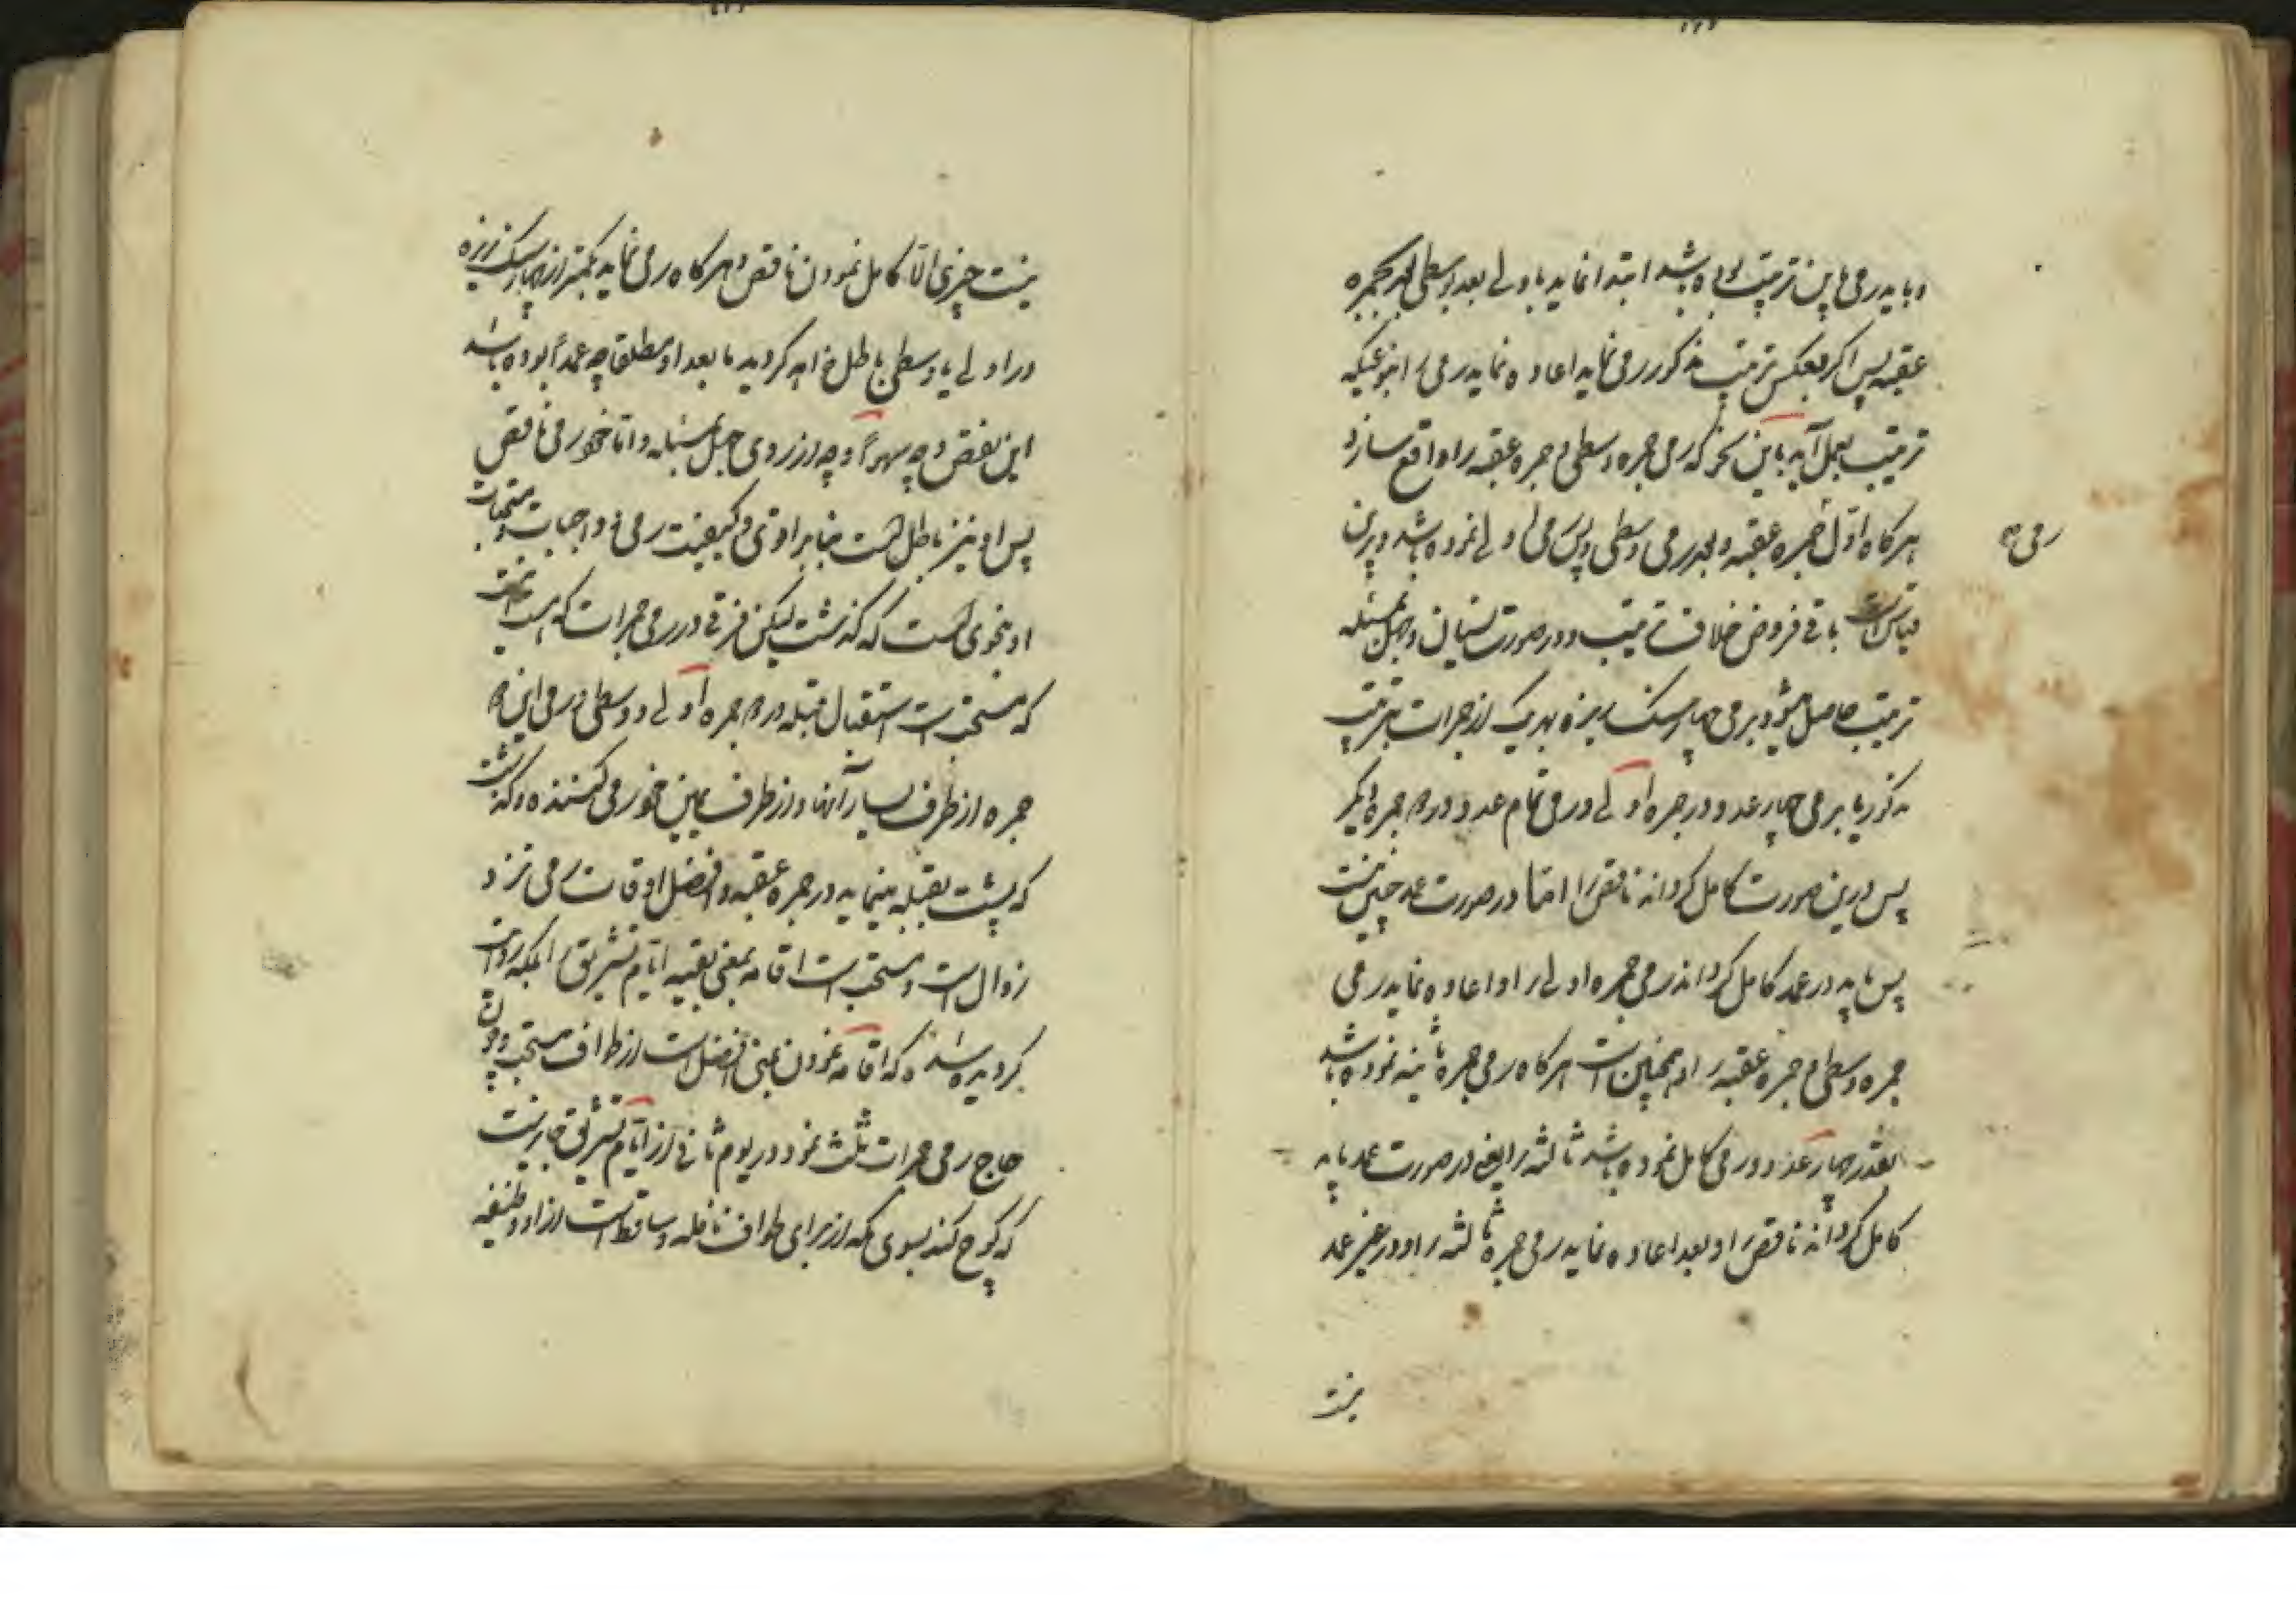 و باید رمی باین ترتیب بوده باشد ابتدا نماید باولی بعد وسطی بعد جمره
عقبه پس اکر بعکس ترتیب مذکور رمی نماید اعاده نماید رمی را بنوعیکه
ترتیب بعمل آید باین نحو که رمی جمره وسطی و جمره عقبه را واقع سازد
هر کاه اوّل جمره عقبه و بعد رمی وسطی و پس رمی اولی نموده باشد و برین
رمی
قیاس است باقی فروض خلاف ترتیب و در صورت نسیان و جهل بمسئله
ترتیب حاصل میشود برمی چهار سنک ریزه بهر یک از جمرات بترتیب
مذکور یا برمی چهار عدد در جمره اولی و رمی تمام عدد در دو جمره دیکر
پس درین صورت کامل کرداند ناقص را اما در صورت عمد چنین نیست
پس باید در عمد کامل کرداند رمی جمره اولی را و اعاده نماید رمی
جمره وسطی و جمره عقبه را و همچنین است هر کاه رمی جمره ثانیه نموده باشد
بقدر چهار عدد و رمی کامل نموده باشد ثالثه را یعنی در صورت عمد باید
کامل کرداند ناقص را و بعد اعاده نماید رمی جمره ثالثه را و در غیر عمد
نیست
نیست چیزی الّا کامل نمودن ناقص و هر کاه رمی نماید بکمتر از چهار سنک ریزه
در اولی یا وسطی باطل خواهد کردید ما بعد او مطلقا چه عمداً بوده باشد
این نقص و چه سهواً و چه از روی جهل بمسئله و اما خود رمی ناقص
پس او نیز باطل است بنابر اقوی و کیفیت رمی و واجبات و مستحبات
او بنحوی است که کذشت لیکن فرقی در رمی جمرات که هست اینست
که مستحب است استقبال قبله در دو جمره اولی و وسطی و رمی این دو
جمره از طرف یسار آنها و از طرف یمین خود رمی کننده و کذشت
که پشت بقبله مینماید در جمره عقبه و افضل اوقات رمی نزد
زوال است و مستحب است اقامه بمنی بقیه ایام تشریق بلکه روایت
کردیده شده که اقامه نمودن بمنی افضل است از طواف مستحب و چون
حاج رمی جمرات ثلث نمود در یوم ثانی از ایام تشریق جایز نیست
که کوچ کند بسوی مکه از برای طواف نافله و ساقط است از او وظیفه